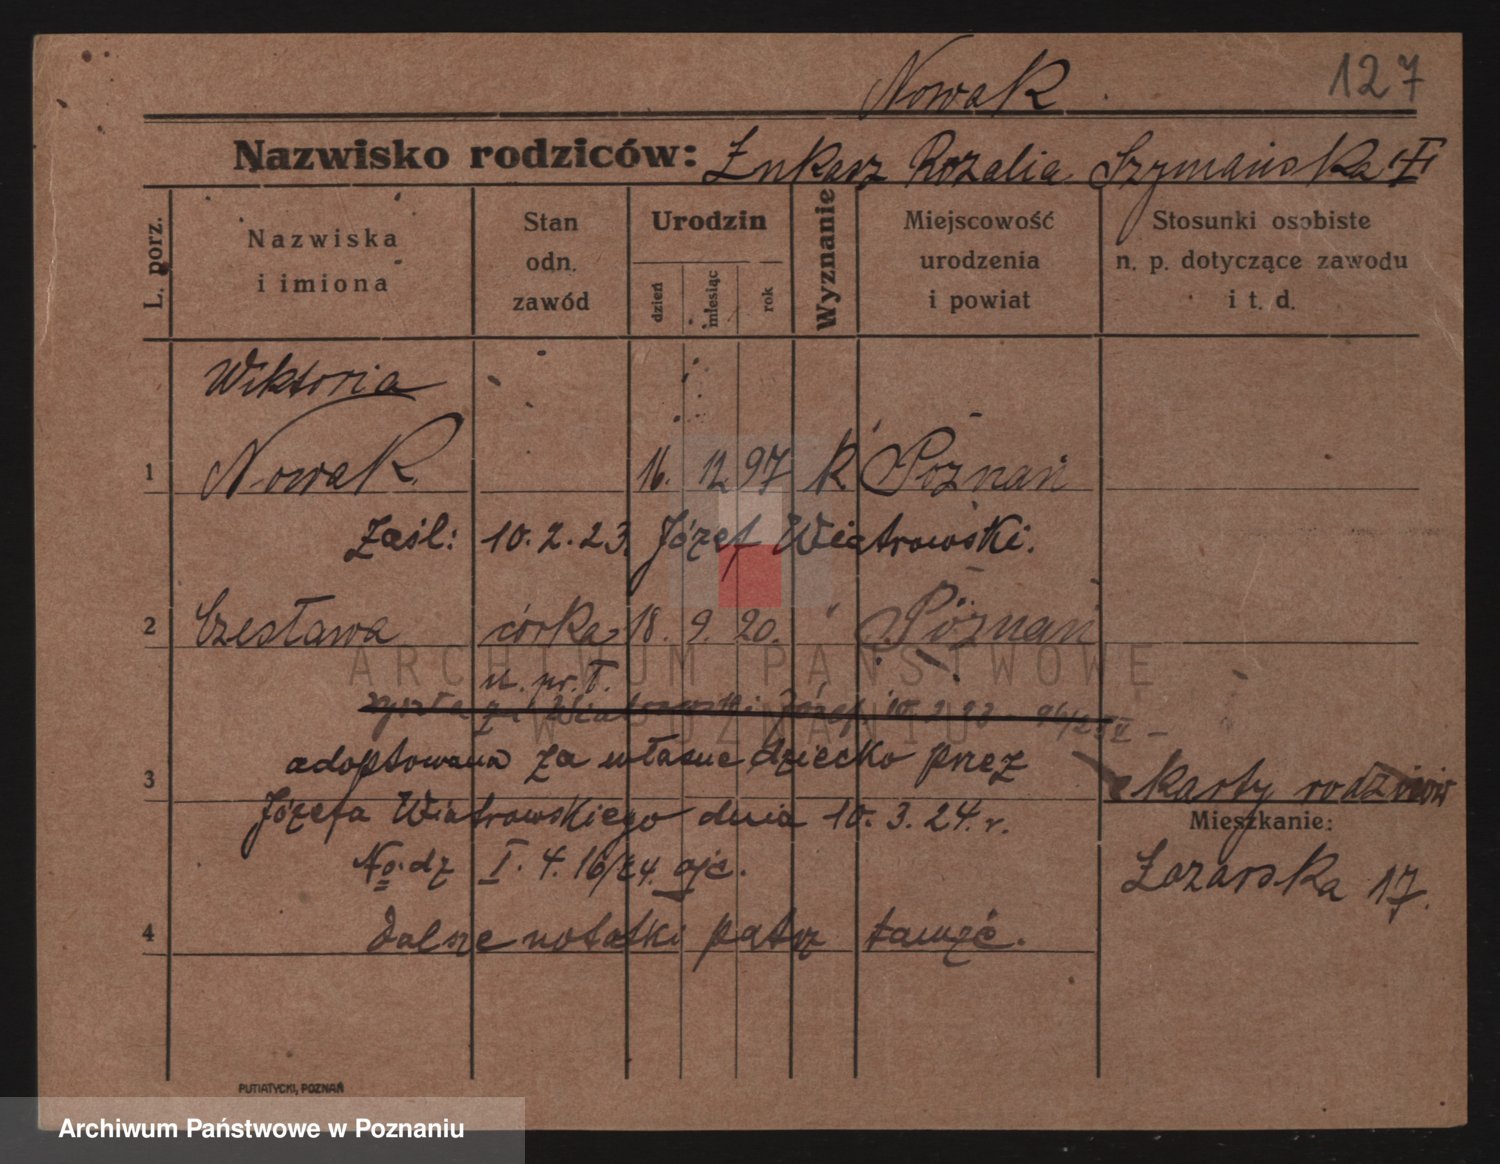 Nowak
127
Nazwisko rodziców: Łukasz Rozalia Szymańska
L. porz.
Nazwiska
i imiona
Stan
odn.
zawód
Urodzin
dzień
miesiąc
rok
Wyznanie
Miejscowość
urodzenia
i powiat
Stosunki osobiste
n. p. dotyczące zawodu
i t. d.
Wiktoria
1 Nowak 16. 12 97 k Poznań
Zaśl: 10.2.23. Józef Wiatrowski.
2 Czesława córka 18. 9. 20. " Poznań
ARCHIWUM PAŃSTWOWE
W POZNANIU
Wiatrowski Józef 10.2.23
adoptowana za własne dziecko przez
3
Józefa Wiatrowskiego dnia 10.3.24.r.
No. dz I. 4. 16/24.
4 dalsze notatki patrz
karty rodziców
Mieszkanie:
Łazarska 17.
PUTIATYCKI, POZNAŃ
Archiwum Państwowe w Poznaniu